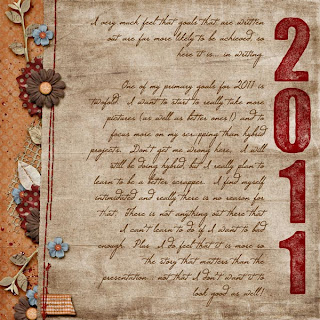 I very much feel that goals that are written
out are far more likely to be achieved, so
here it is... in writing.
One of my primary goals for 2011 is
twofold. I want to start to really take more
pictures (as well as better ones!) and to
focus more on my scrapping than hybrid
projects. Don't get me wrong here, I will
still be doing hybrid, but I really plan to
learn to be a better scrapper. I find myself
intimidated and really there is no reason for
that, there is not anything out there that
I can't learn to do if I want to bad
enough. Plus, I do feel that it is more so
the story that matters than the
presentation... not that I don't want it to
look good as well!
2011